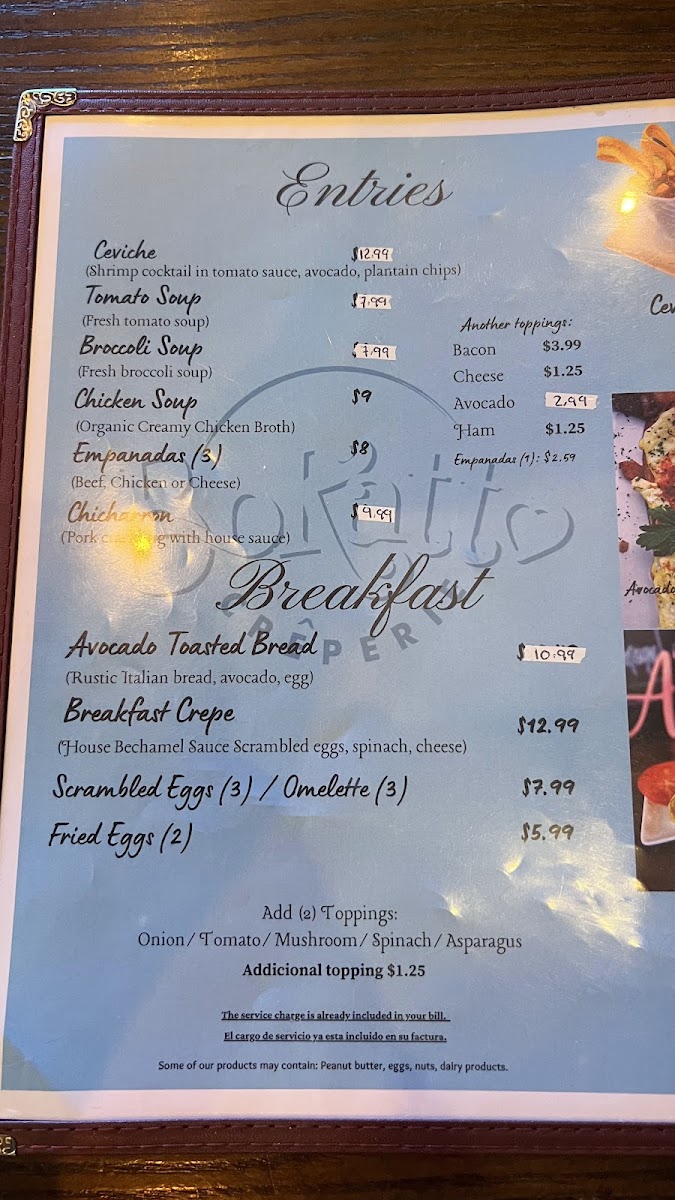 Entries
Ceviche $12.99
(Shrimp cocktail in tomato sauce, avocado, plantain chips)
Tomato Soup $7.99
(Fresh tomato soup)
Broccoli Soup $7.99
(Fresh broccoli soup)
Chicken Soup $9
(Organic Creamy Chicken Broth)
Empanadas (3) $8
(Beef, Chicken or Cheese)
Chicharron $9.99
(Pork with house sauce)
Another toppings:
Bacon $3.99
Cheese $1.25
Avocado 2,99
Ham $1.25
Empanadas (1): $2.59
Cev
Avocado
CRÊPERI
Breakfast
Avocado Toasted Bread $10.99
(Rustic Italian bread, avocado, egg)
Breakfast Crepe $12.99
(House Bechamel Sauce Scrambled eggs, spinach, cheese)
Scrambled Eggs (3) / Omelette (3) $7.99
Fried Eggs (2) $5.99
Add (2) Toppings:
Onion/ Tomato/ Mushroom/ Spinach/ Asparagus
Addicional topping $1.25
The service charge is already included in your bill.
El cargo de servicio ya esta incluido en su factura.
Some of our products may contain: Peanut butter, eggs, nuts, dairy products.